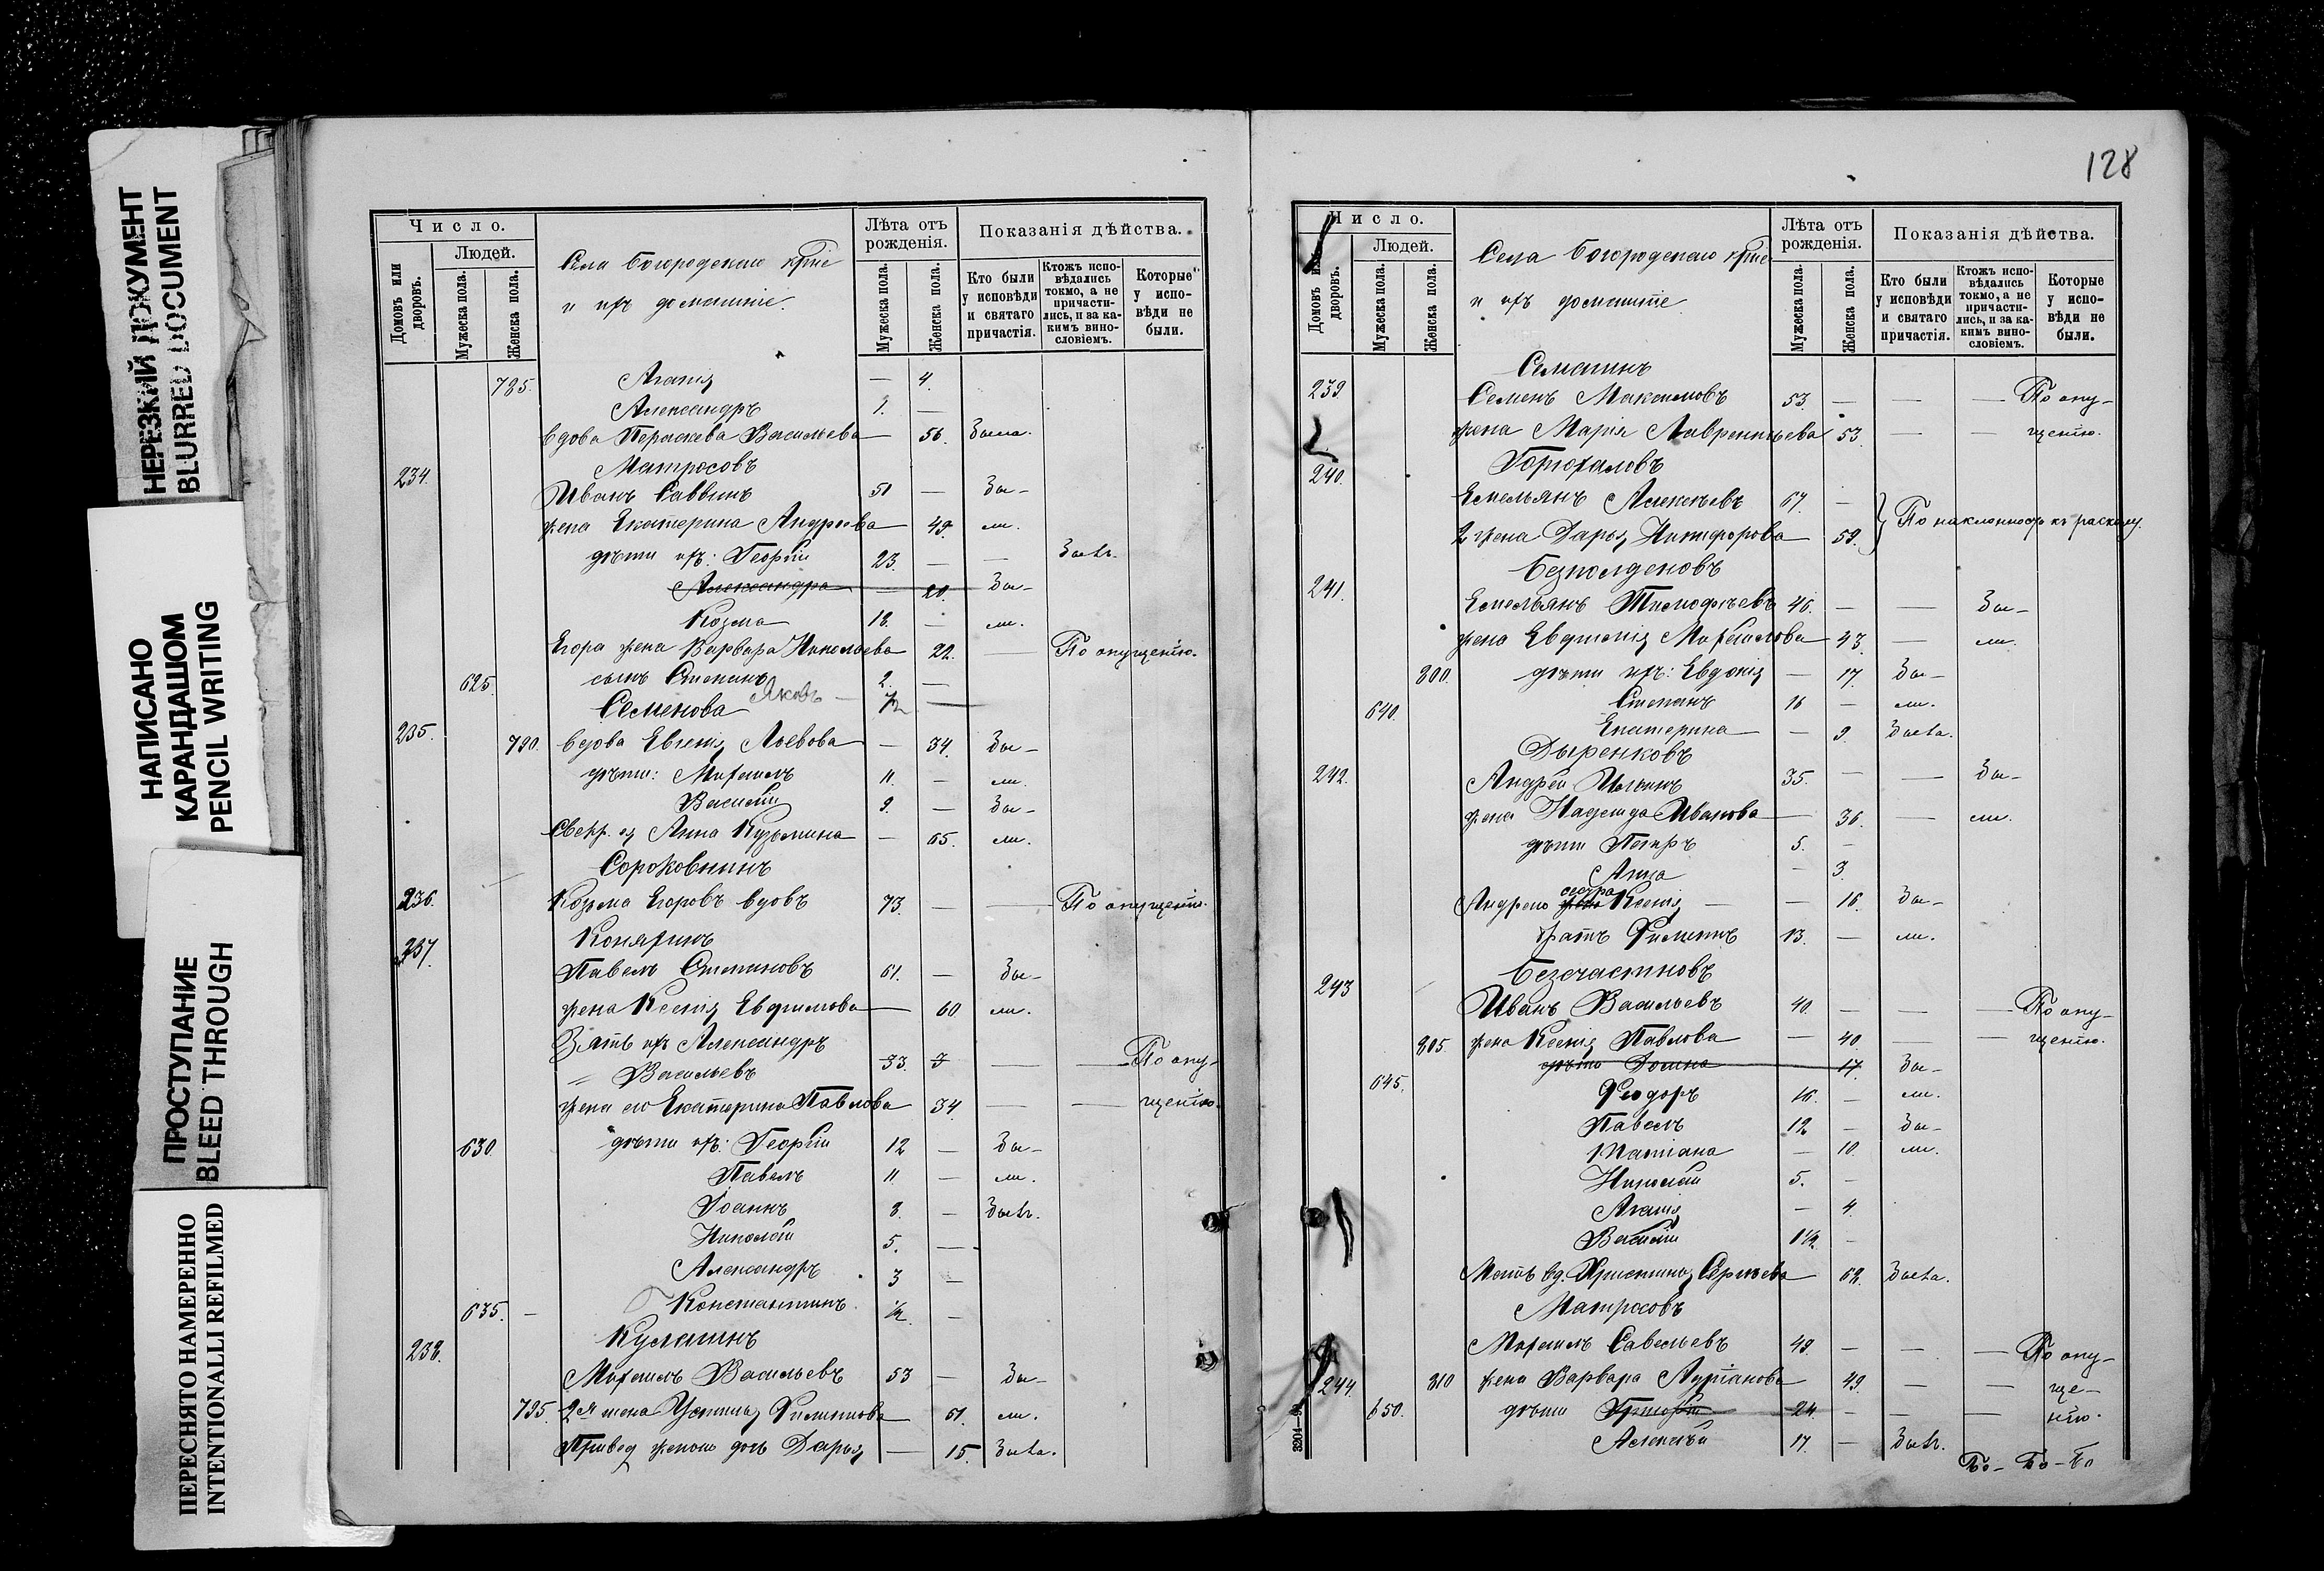 НЕРЕЗКИЙ ДОКУМЕНТ
BLURRED DOCUMENT
НАПИСАНО
КАРАНДАШОМ
PENCIL WRITING
ПРОСТУПАНИЕ
BLEED THROUGH
ПЕРЕСНЯТО НАМЕРЕННО
INTENTIONALLI REFILMED
Число.
Домовъ или дворовъ.
Людей.
Мужеска пола.
Женска пола.
Села Богородскаго крᲁе
и ихъ домашніе.
Лѣта отъ рожденія.
Мужеска пола.
Женска пола.
Показанія дѣйства.
Кто были у исповѣди и святаго причастія.
Ктожъ исповѣдались токмо, а не причастились, и за какимъ винословіемъ.
Которые у исповѣди не были.
785. Агапія — 4.
Александръ 1. —
вдова Параскева Васильева — 56. была.
Матросовъ
234. Иванъ Саввинъ 51 — бы-
жена Екатерина Андреева 49. ли.
дѣти ихъ: Георгій 23. — — былъ.
Александра — 20. бы-
Козма 18. — ли.
Егора жена Варвара Николаева 22. — По опущенію.
625. сынъ Степанъ 2. —
Яковъ — 1/2 —
Семенова
235. 790. вдова Евгенія Львова — 34. бы-
дѣти: Михаилъ 11. — ли.
Василій 9. — бы-
Свекр. ея Анна Кузьмина — 65. ли.
Сороковнинъ
236. Козьма Егоровъ вдовъ 73. — — По опущенію.
Коняхинъ
237. Павелъ Степановъ 61. — бы-
жена Ксенія Евфимова — 60 ли.
Зять ихъ Александръ
Васильевъ 33. — — По опу-
жена его Екатерина Павлова 34 — — щенію.
630. дѣти ихъ: Георгій 12 — бы-
Павелъ 11 — ли.
Іоаннъ 8. — былъ.
Николай 5. —
Александръ 3 —
635. — Константинъ. 1/2. —
Кулагинъ
238. Михаилъ Васильевъ 53 — бы-
795. 2я жена Устинія Филиппова 61. ли.
Привед. женою дочь Дарья — 15. была.
128
Число.
Домовъ или дворовъ.
Людей.
Мужеска пола.
Женска пола.
Села Богородскаго крᲁе
и ихъ домашніе.
Лѣта отъ рожденія.
Мужеска пола.
Женска пола.
Показанія дѣйства.
Кто были у исповѣди и святаго причастія.
Ктожъ исповѣдались токмо, а не причастились, и за какимъ винословіемъ.
Которые у исповѣди не были.
Семагинъ
239. Семенъ Максимовъ 53. — — — По опу-
жена Марія Лаврентьева 53. — — щенію.
240. Горюхаловъ
Емельянъ Алексѣевъ 67. —
2 жена Дарья Никифорова 59. По наклонности къ расколу.
Безполденовъ
241. Емельянъ Тимофѣевъ 46. — — бы-
жена Евфимія Михайлова 43. — ли.
800. дѣти ихъ: Евдокія — 17. бы-
640. Степанъ 16 — ли.
Екатерина — 9. была.
Дыренковъ
242. Андрей Ильинъ 35. — — бы-
жена Надежда Иванова — 36. — ли.
дѣти Петръ 5. —
Анна — 3.
сестра
Андрея жена Ксенія — — 16. бы-
братъ Филиппъ 13. — ли.
Безсчастновъ
243 Иванъ Васильевъ 40. — — — По опу-
805. жена Ксенія Павлова — 40. — — щенію.
дѣти Домна 17. бы-
645. Ѳеодоръ 16. — ли.
Павелъ 12 — бы-
Татіана — 10. ли.
Николай 5. —
Агапія — 4.
Василій 1 1/2. —
Мать вд. Христина Сергѣева 62. была.
Матросовъ
Михаилъ Савельевъ 49. — — — По опу-
244. 810 жена Варвара Лукіанова 49. — — ще-
650. дѣти Григорій 24. — — — нію.
Алексѣй 17. — былъ.
Бо- Бо- Бо
3204—9